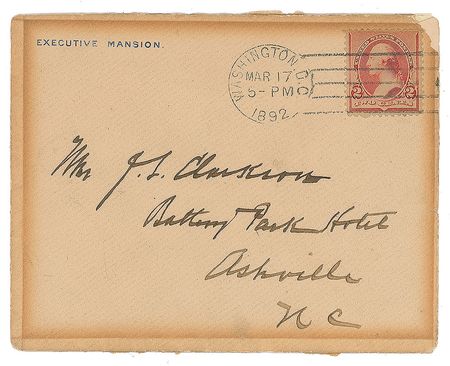 EXECUTIVE MANSION.
WASHINGTON, D.C.
MAR 17
5-PM
1892
2 2
J. S. Clarkson
Battery Park Hotel
Ashville
N C